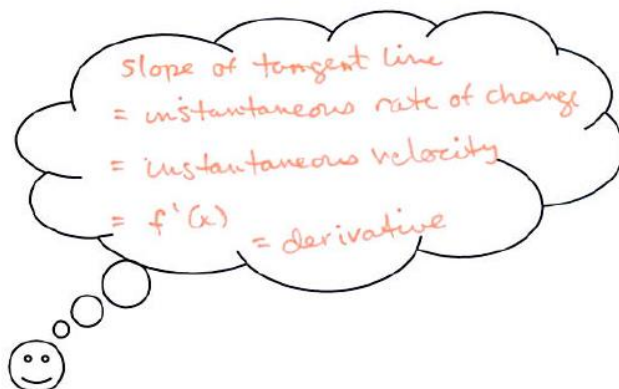 slope of tangent line
= instantaneous rate of change
= instantaneous velocity
= f'(x)
= derivative